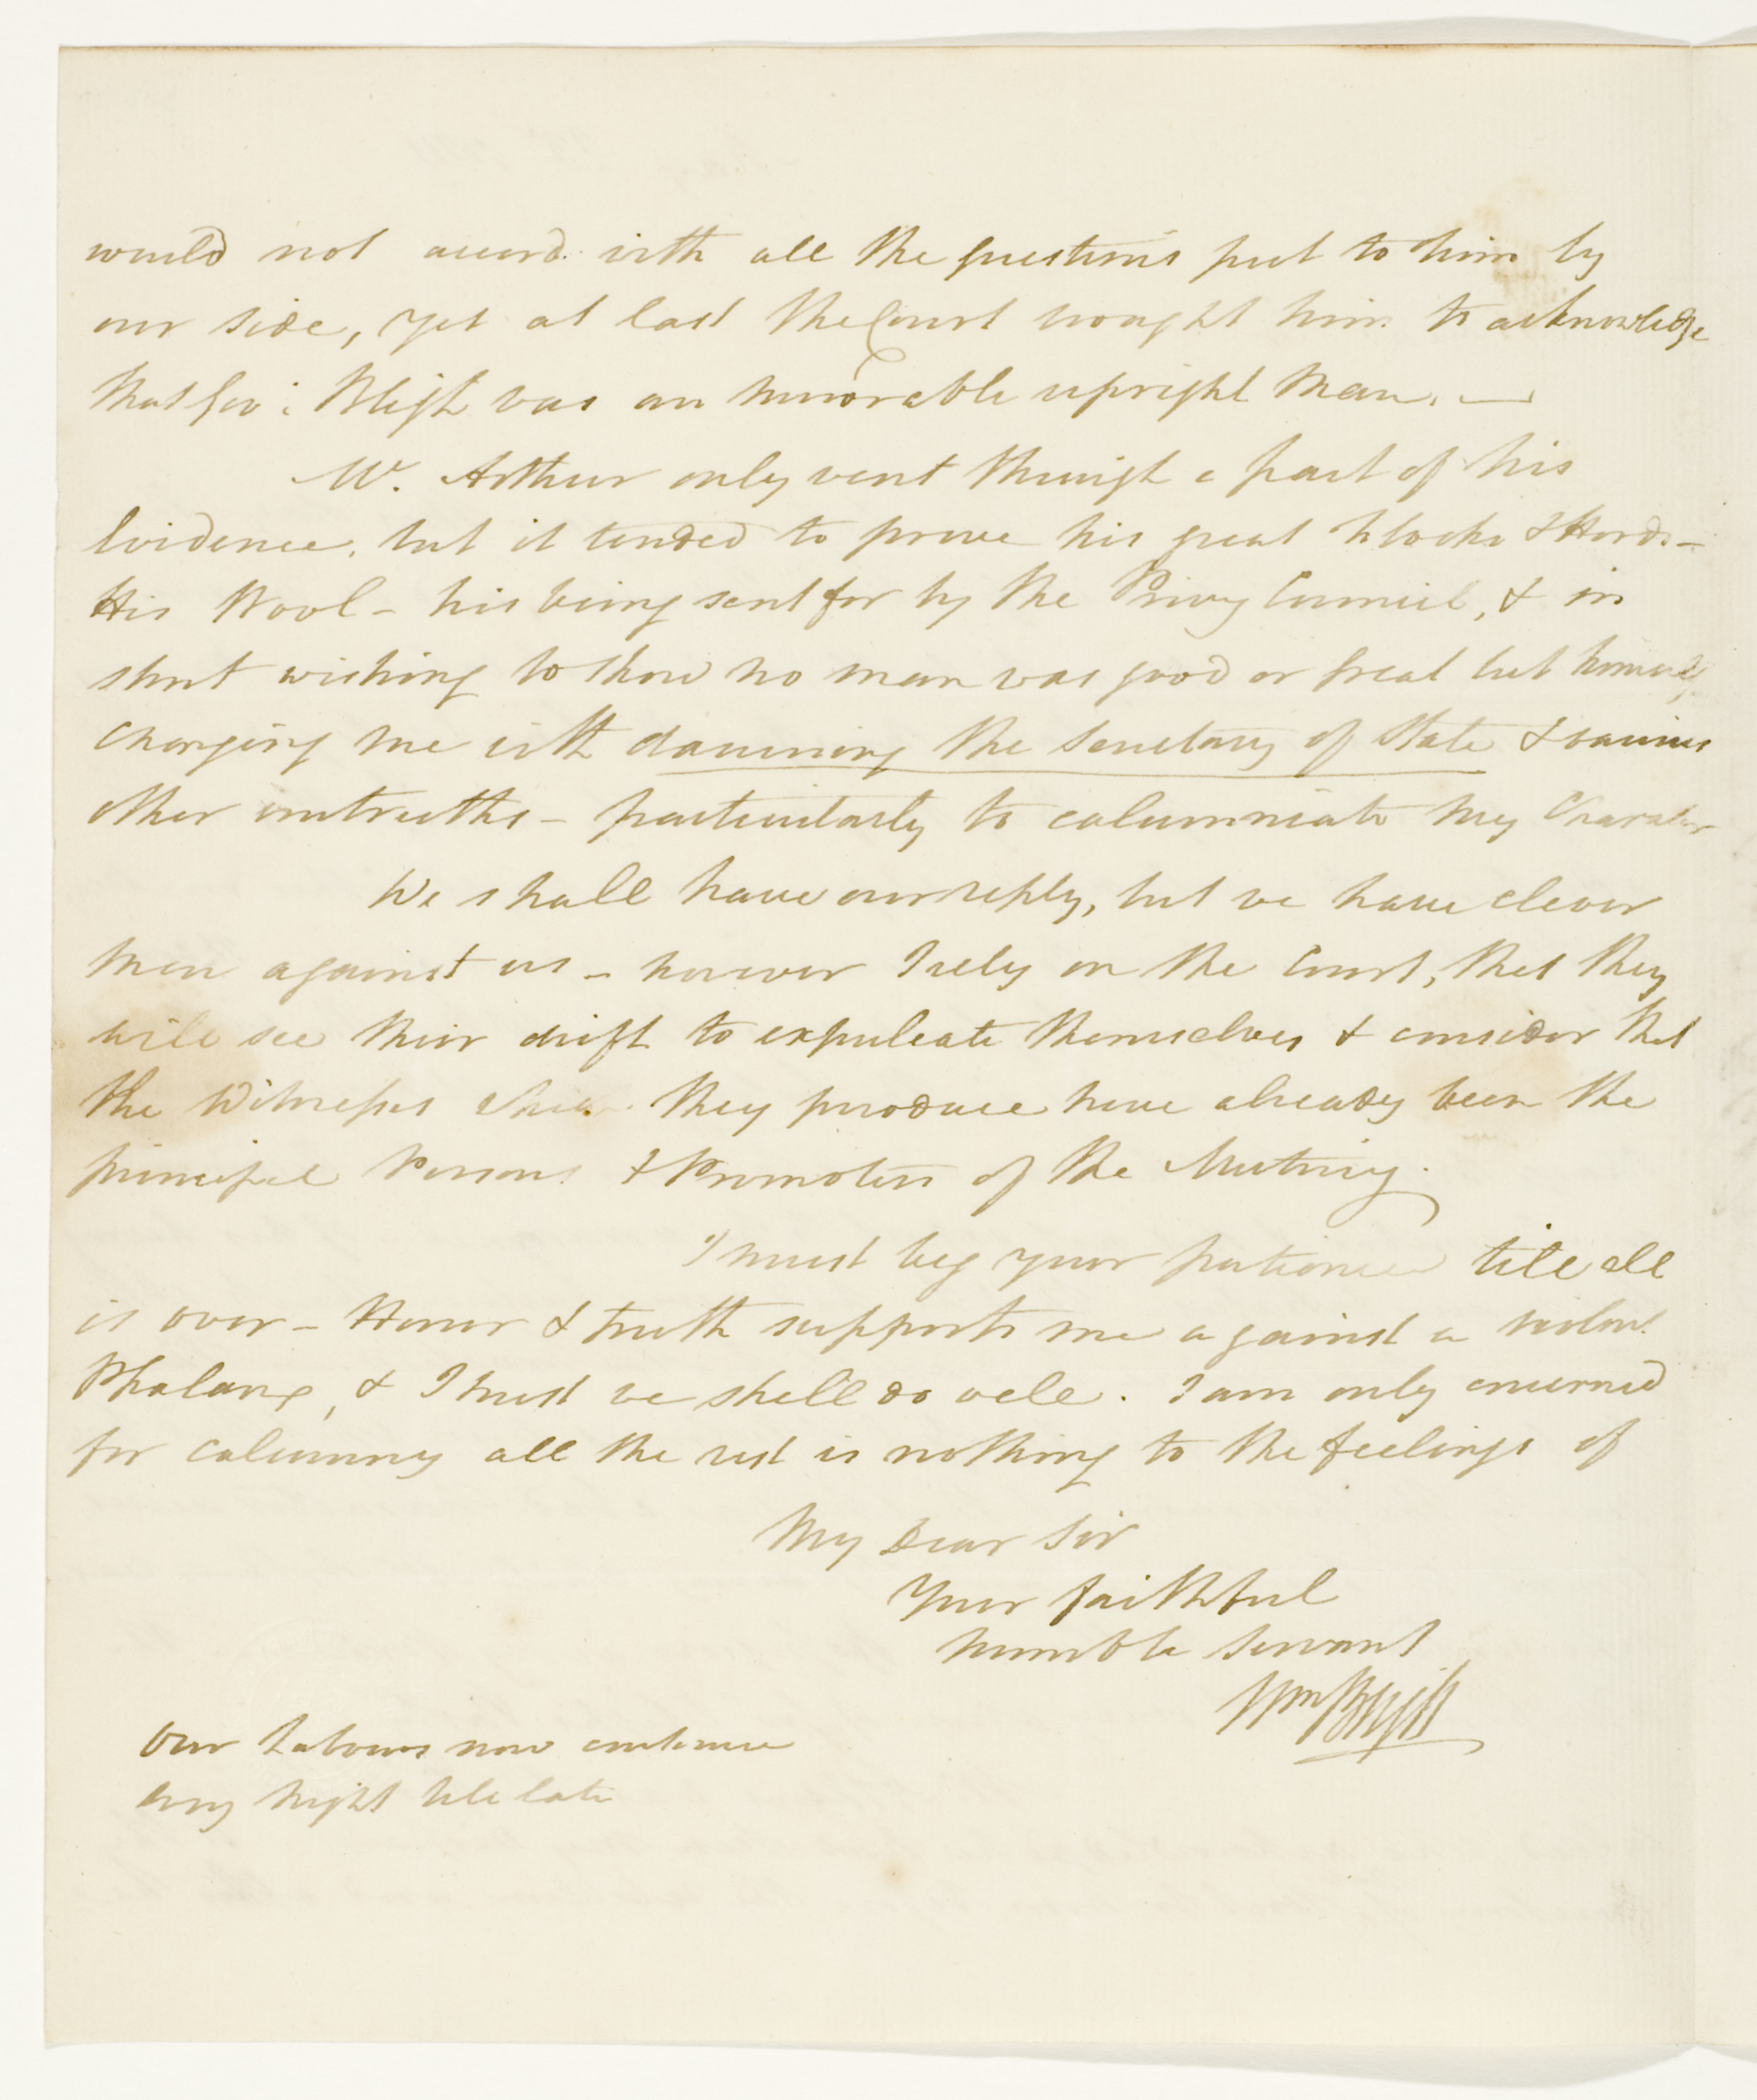 would not accord with all the questions put to him by
our side, yet at last the Court brought him to acknowledge
that Gov: Bligh was an honorable upright Man. —
Mc. Arthur only went through a part of his
Evidence, but it tended to prove his great Flocks & Herds –
His Wool – his being sent for by the Privy Council, & in
short wishing to show no man was good or great but himself
charging me with damning the Secretary of State & various
other untruths – particularly to calumniate my Character
We shall have our reply, but we have clever
men against us – however I rely on the Court, that they
will see their drift to expulcate themselves & consider that
the Witnesses they produce have already been the
principal Persons & Promoters of the Mutiny.
I must beg your patience till all
is over – Honor & truth supports me against a violent
Phalanx, & I trust we shall do well. I am only concerned
for calumny all the rest is nothing to the feelings of
My Dear Sir
Your faithful
humble Servant
Wm Bligh
Our Labours now continue
every night till late